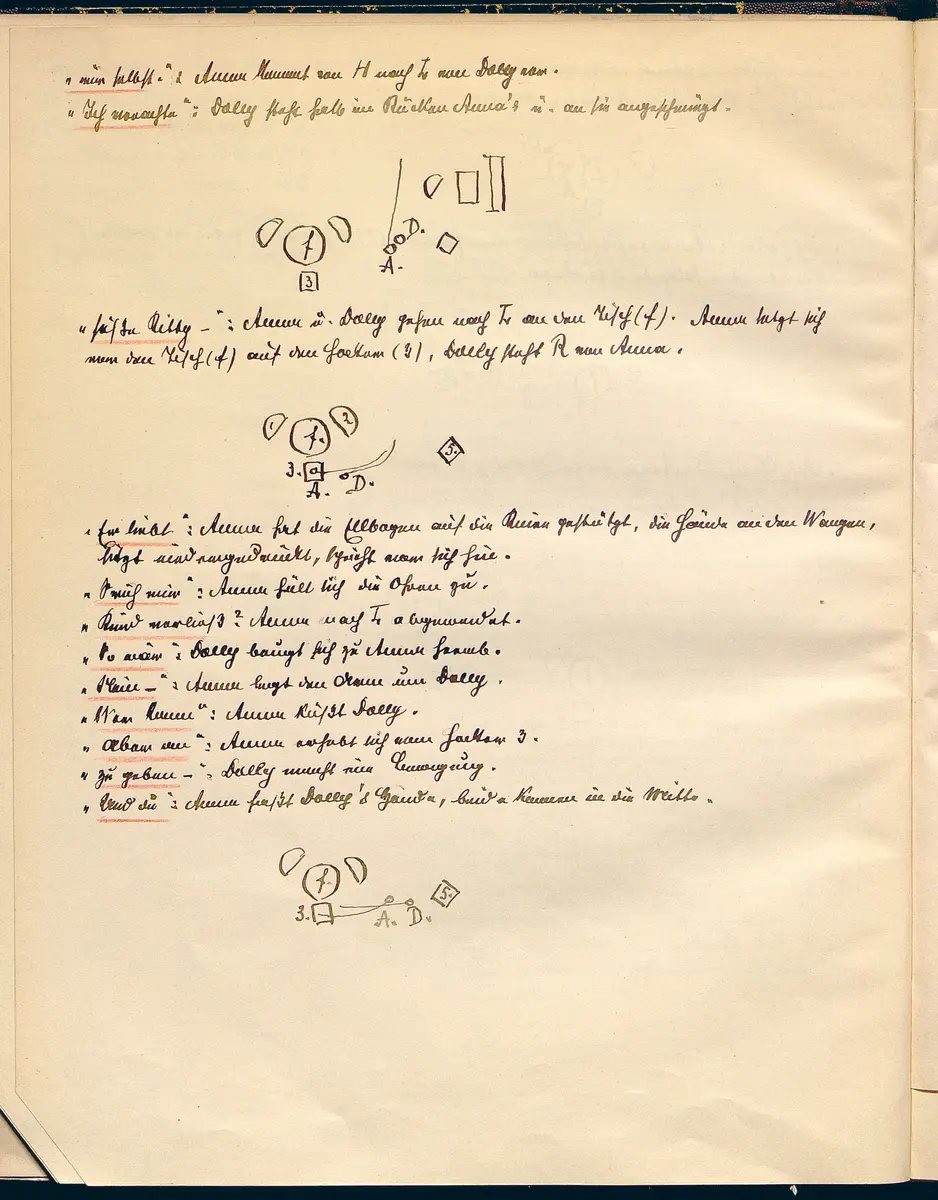 „mir selbst.“: Anna kommt von H nach L von Dolly vor.
„Ich verachte“: Dolly steht halb im Rücken Anna's u. an sie angeschmiegt.
D.
f
A.
3
„süße Kitty –“: Anna u. Dolly gehen nach L an den Tisch (f). Anna setzt sich
vor den Tisch (f) auf den Hocker (3), Dolly steht R von Anna.
1 2
f.
5.
3.
A. D.
„Er liebt“: Anna hat die Ellbogen auf die Kniee gestützt, die Hände an den Wangen,
sitzt niedergedrückt, spricht vor sich hin.
mir“: Anna hält sich die Ohren zu.
„Kind verließ? Anna nach L abgewendet.
„So wär“: Dolly beugt sich zu Anna herab.
„Nein –“: Anna legt den Arm um Dolly.
„Wer kann“: Anna küßt Dolly.
„Aber“: Anna erhebt sich vom Hocker 3.
„zu geben –“: Dolly macht eine Bewegung.
„Und du“: Anna faßt Dolly's Hände, beide kommen in die Mitte.
f
5.
3.
A. D.